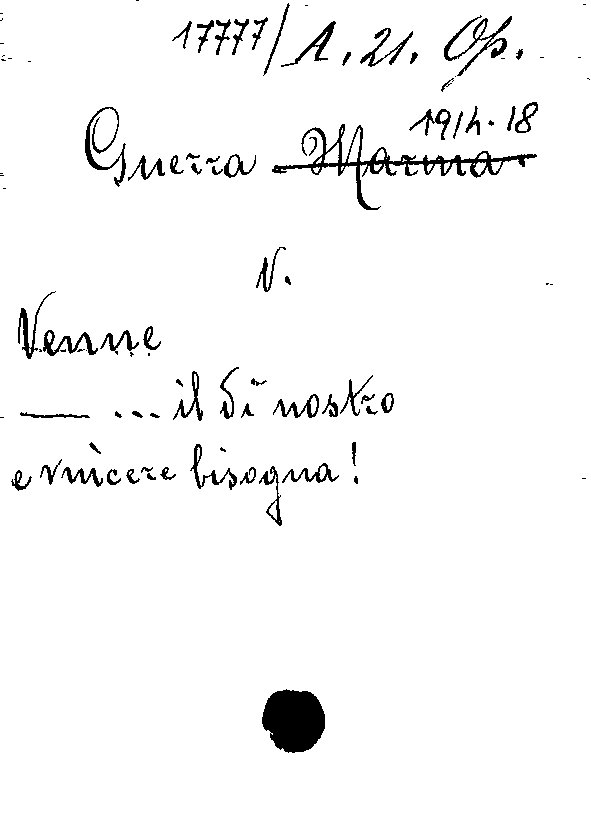 17777/1.21. Op.
1914-18
Guerra - Marina.
V.
Venne
— ... il dì nostro
e vincere bisogna!